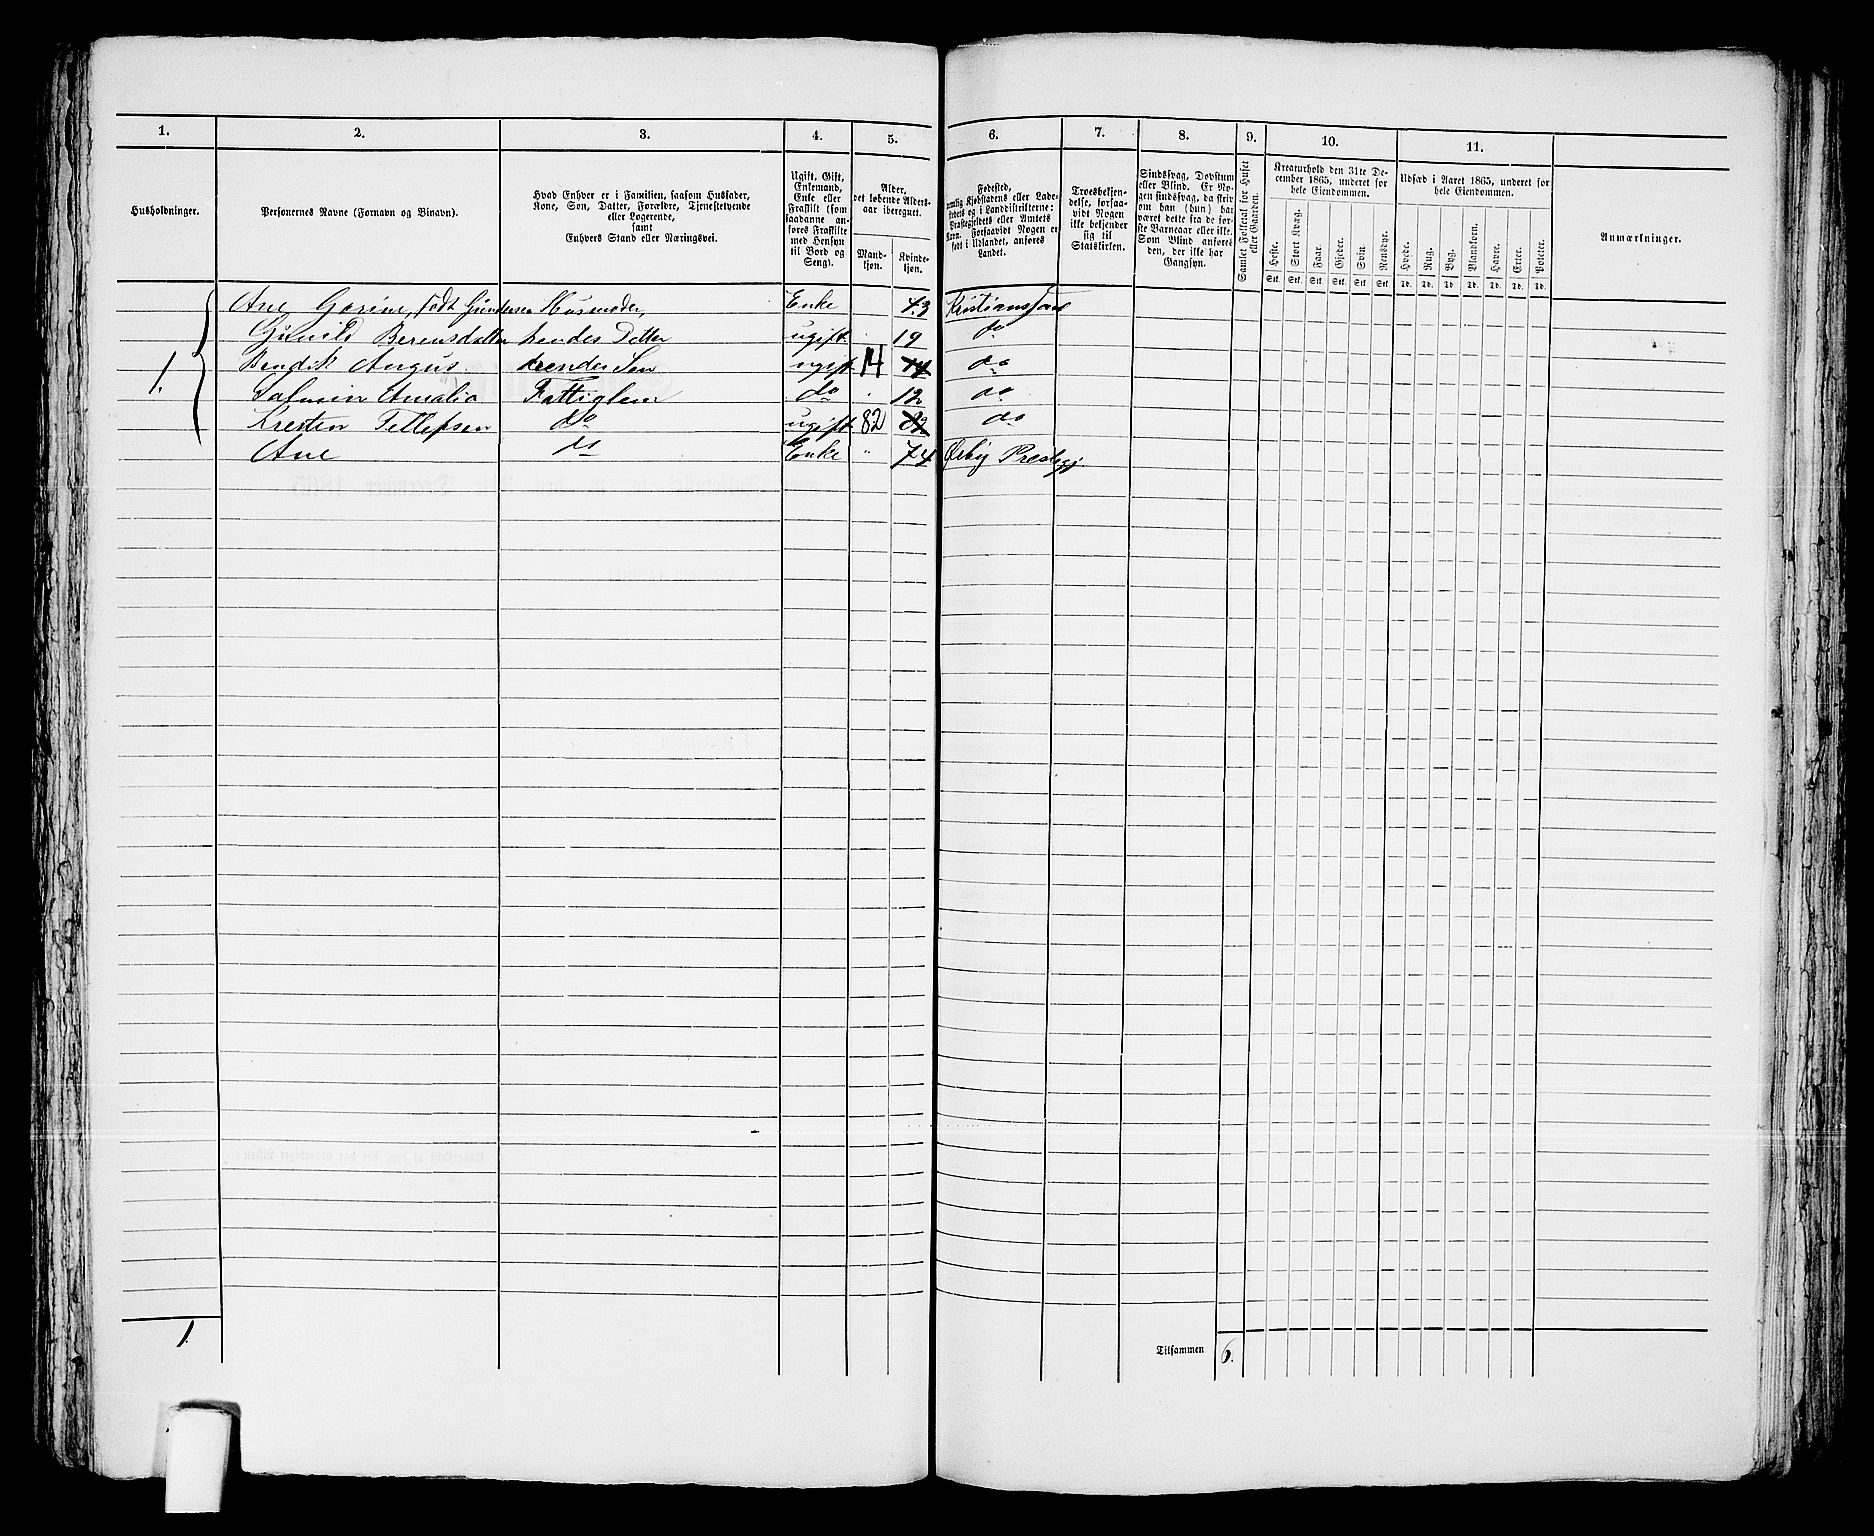 1. 2. 3. 4. 5. 6. 7. 8. 9. 10. 11.
Husholdninger.
Personernes Navne (Fornavn og Binavn).
Hvad Enhver er i Familien, saasom Husfader,
Kone, Søn, Datter, Forældre, Tjenestetyende
eller Logerende,
samt
Enhvers Stand eller Næringsvei.
Ugift, Gift,
Enkemand,
Enke eller
Fraskilt (som
saadanne an-
føres Fraskilte
med Hensyn
til Bord og
Seng).
Alder,
det løbende Alders-
aar iberegnet.
Mand-
kjøn.
Kvinde-
kjøn.
Fødested,
nemlig Kjøbstadens eller Lade-
stedets og i Landdistrikterne:
Præstegjeldets eller Amtets
Navn. Forsaavidt Nogen er
født i Udlandet, anføres
Landet.
Troesbekjen-
delse, forsaa-
vidt Nogen
ikke bekjender
sig til
Statskirken.
Sindssvag, Døvstum
eller Blind. Er No-
gen sindssvag, da skrives
om han (hun) har
været dette fra de før-
ste Barneaar eller ikke.
Som Blind anføres
den, der ikke har
Gangsyn.
Samlet Folketal for Huset
eller Gaarden.
Kreaturhold den 31te De-
cember 1865, underet for
hele Eiendommen.
Heste. Stort Kvæg. Faar. Gjeder. Svin. Rensdyr.
Stk. Stk. Stk. Stk. Stk. Stk.
Udsæd i Aaret 1865, underet for
hele Eiendommen.
Hvede. Rug. Byg. Blandkorn. Havre. Erter. Poteter.
Td. Td. Td. Td. Td. Td. Td.
Anmærkninger.
Ane Gorine, født Gundersen Husmoder, Enke 43 Kristianssand
Gunild Berensdatter hendes Detter ugift 19 do
1. Bendik Angus hendes Søn ugift 14 14 do
Amalia Fattiglem do 12 do
Kresten Tellefsen do ugift 82 82 do
Ane do Enke " 74 Præstegj
1.
Tilsammen 6.